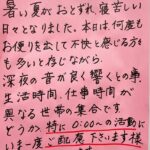 暑い夏がおとずれ、寝苦しい
日々となりました。本日は、何度も
お便りを出して不快と感じる方も
も多いと存じながら、
深夜の音が良く響くもの事、
生活時間、仕事時間が
異なる世帯の集合です
どうか、特に0:00〜の活動に
いま一度ご配慮下さいます様